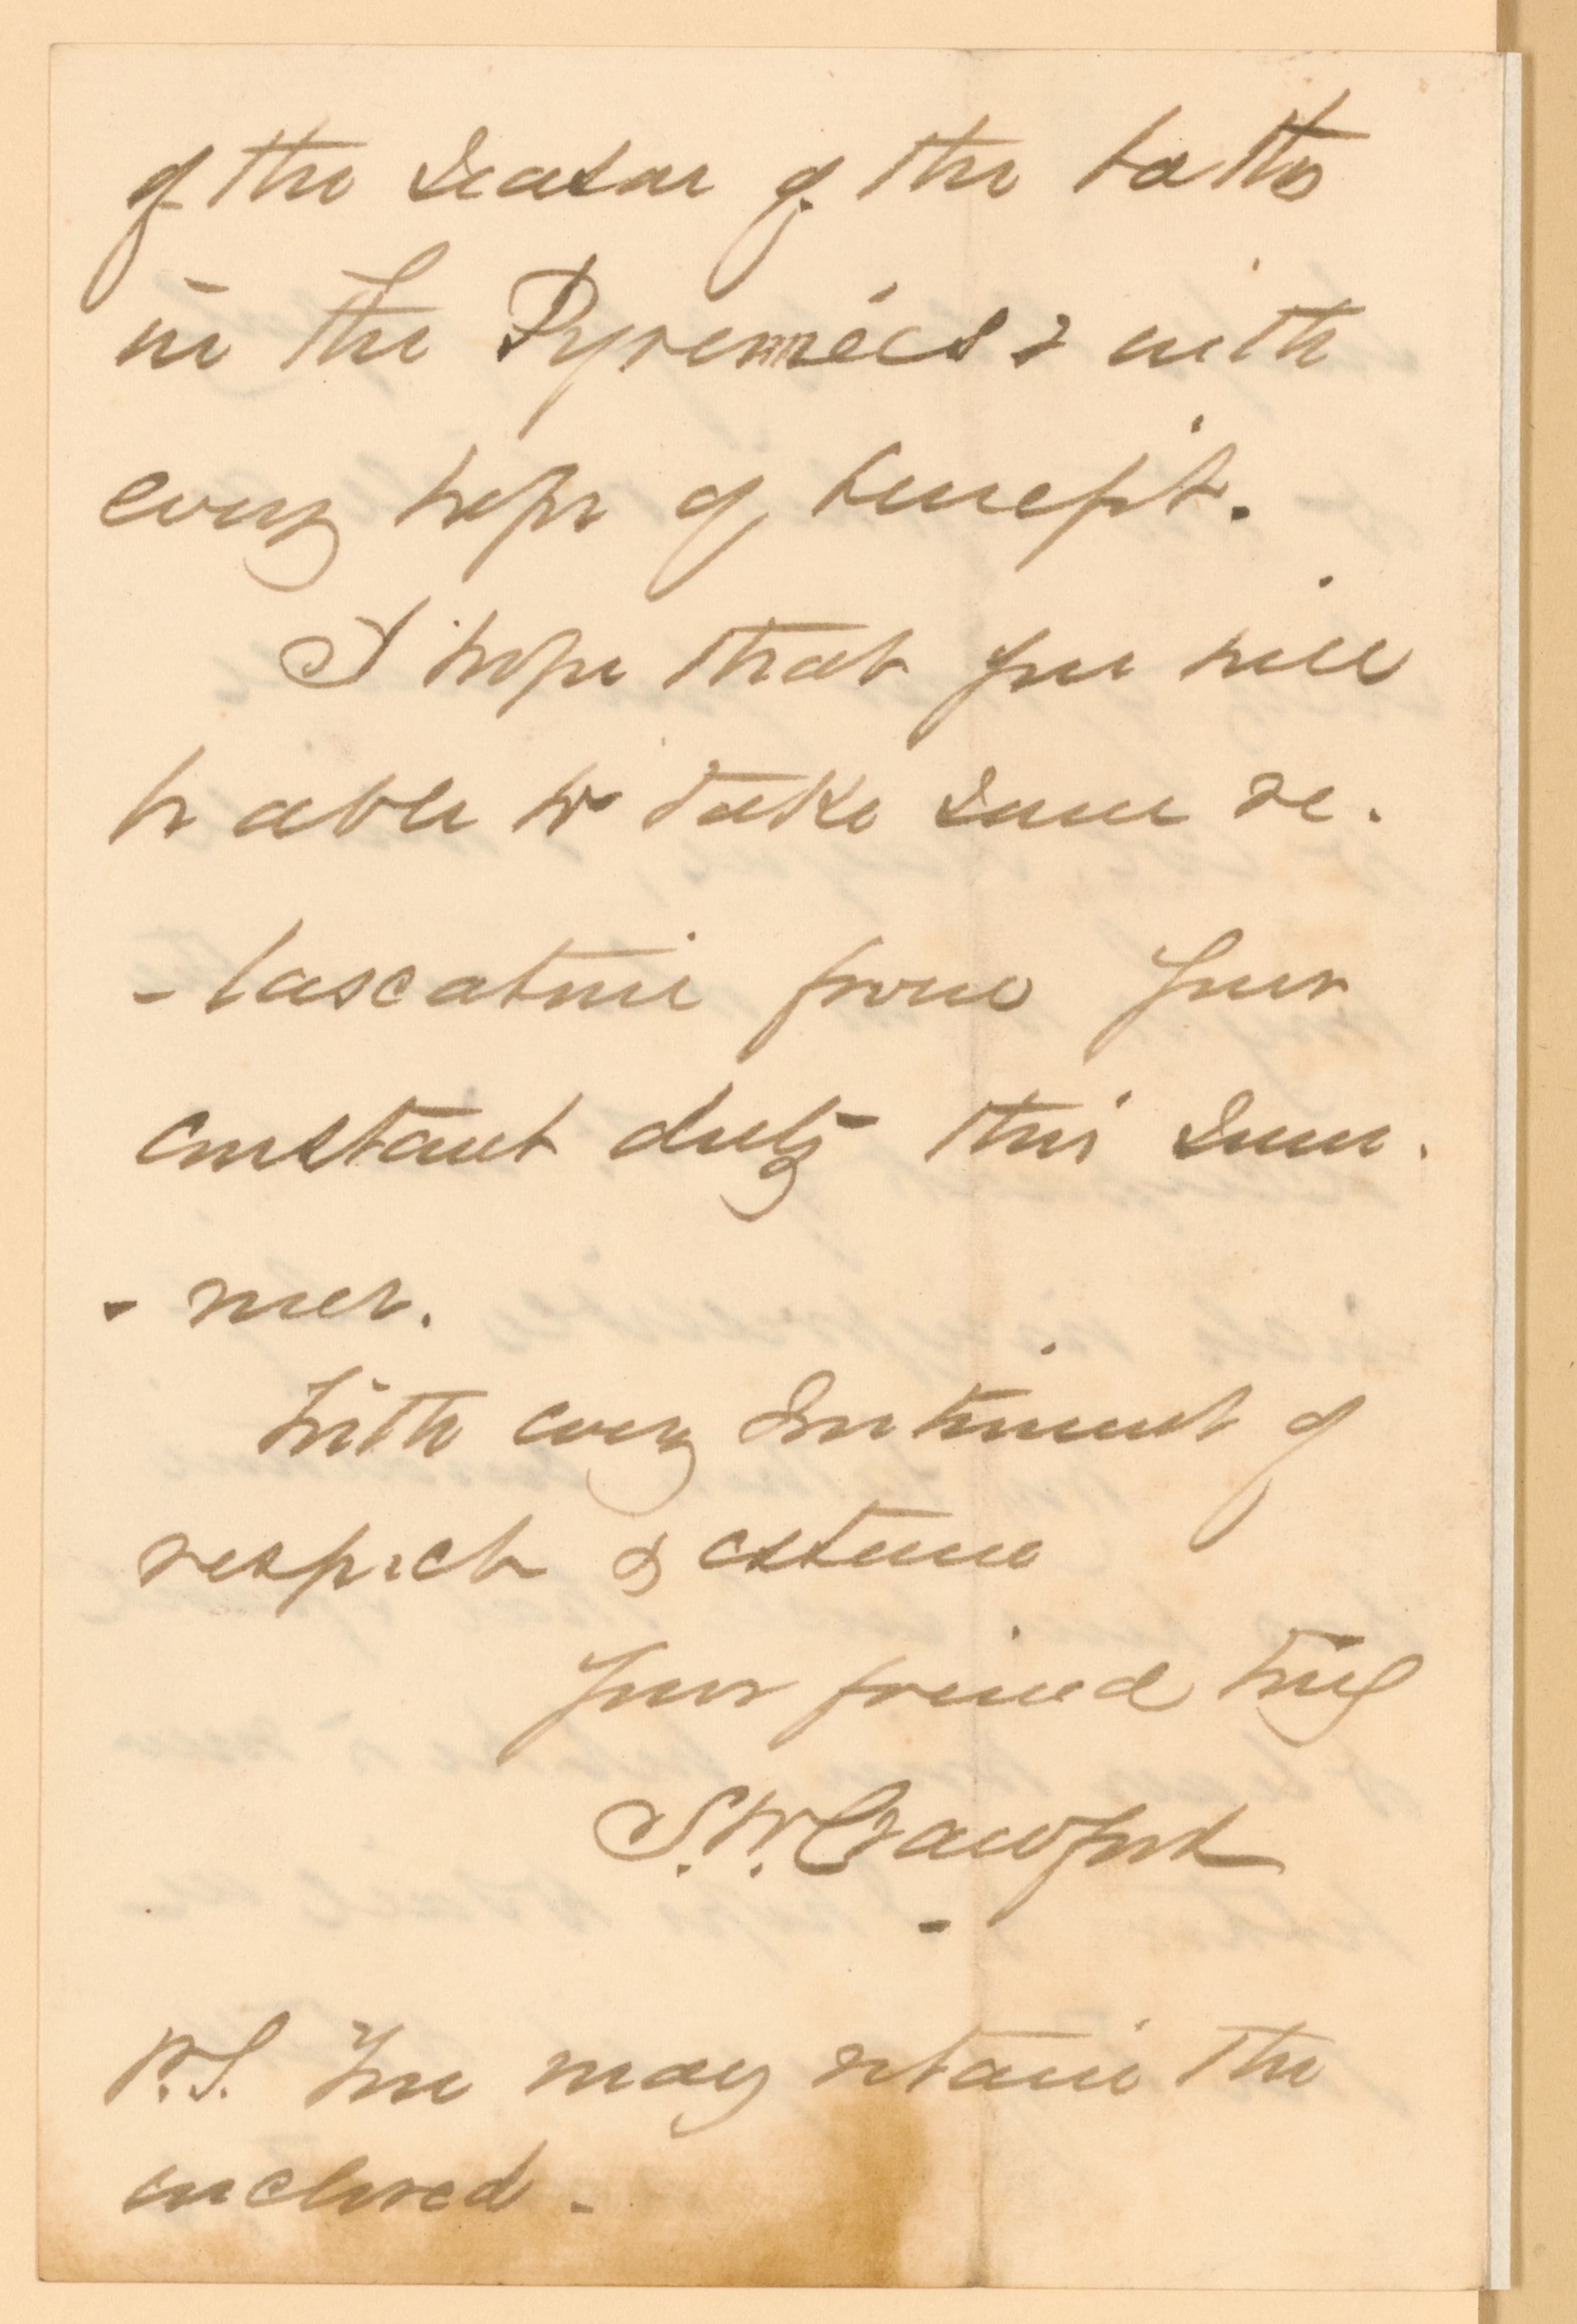 of the season of the baths
in the Pyrennées & with
every hope of benefit.
I hope that you will
be able to take some re-
- laxcation from your
constant duty this sum-
- mer.
With every sentiment of
respect & esteem
Your friend truly
S. W. Crawford
P.S. You may retain the
enclosed -